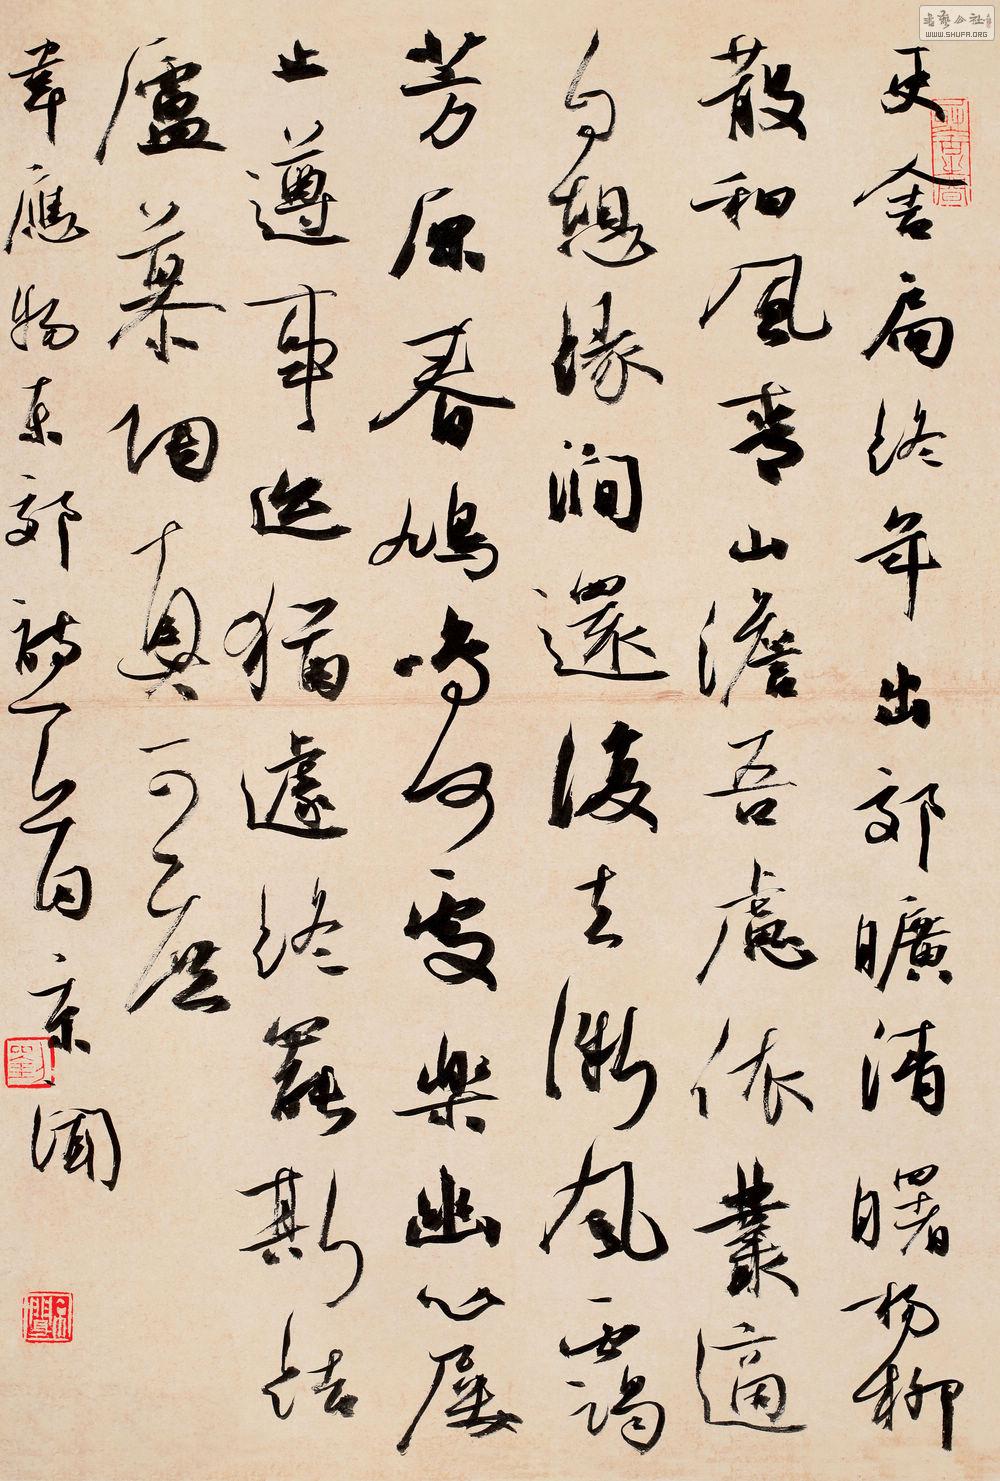 吏舍扃終年出郊曠清曙楊柳
散和風青山澹吾慮依叢適
自憩緣澗還復去微風靄
芳原春鳩鳴何處樂幽心屢
止遵事迹猶遽終罷斯結
廬慕陶真可庶
韋應物東郊詩一首京聞
劉
書藝公社
WWW.SHUFA.ORG